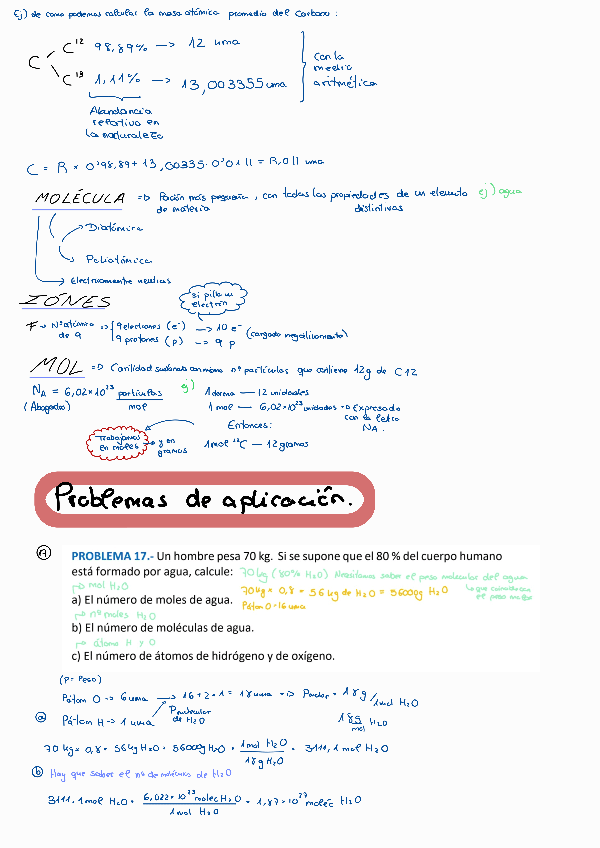 Ej) de como podemos calcular la masa atómica promedio del Carbono:
C
C¹² 98,89% —> 12 uma
C¹³ 1,11% —> 13,003355 uma
Con la
media
aritmética
Abundancia
relativa en
la naturaleza
C = R × 0'98,89 + 13,00335·0'0111 = R,011 uma
MOLÉCULA => Poción más pequeña, con todas las propiedades de un elemento ej) agua
de materia distintivas
Diatómica
Poliatómica
Electricamente neutras
IÓNES
si pilla un
electrón
F -> Nº atómico => 9 electrones (e⁻) —> 10 e⁻ (cargado negativamente)
de 9 9 protones (p) —> 9 p
MOL => Cantidad nº partículas que contiene 12g de C12
N_A = 6,02×10²³ partículas/mol ej) 1 docena — 12 unidades
(Abogadro) 1 mol — 6,02×10²³ unidades => Expresado
con la letra
N_A.
Entonces:
Trabajamos
en moles
y en
gramos
1mol ¹²C — 12 gramos
Problemas de aplicación.
A PROBLEMA 17.- Un hombre pesa 70 kg. Si se supone que el 80 % del cuerpo humano
está formado por agua, calcule: 70 kg (80% H₂O) Necesitamos saber el peso molecular del agua
mol H₂O 70 kg × 0,8 = 56 kg de H₂O = 56000g H₂O
a) El número de moles de agua. P átom O = 16 uma
nº moles H₂O
b) El número de moléculas de agua.
átomo H y O
c) El número de átomos de hidrógeno y de oxígeno.
(P = Peso)
P átom O -> 6 uma —> 16 + 2·1 = 18 uma => 18 g/1mol H₂O
a P átom H -> 1 uma P molecular
de H₂O
18g/mol H₂O
70 kg × 0,8 = 56 kg H₂O = 56000g H₂O · 1mol H₂O/18g H₂O = 3111,1 mol H₂O
b Hay que saber el nº de molécula de H₂O
3111,1mol H₂O · 6,022×10²³ molec H₂O/1mol H₂O = 1,87×10²⁷ moléc H₂O